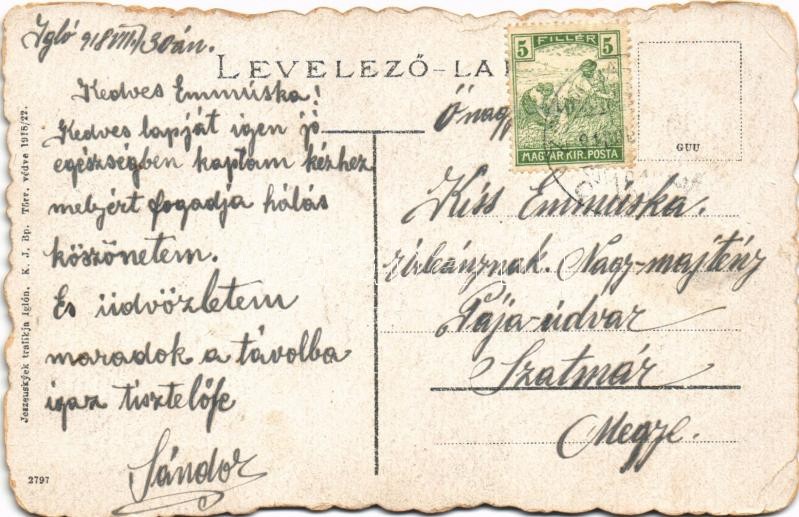 Igló 918 VIII/30án.
LEVELEZŐ-LA
Kedves Emmúska!
Kedves lapját igen jó
egészségben kaptam kézhez
melyért fogadja hálás
köszönetem.
És üdvözletem
maradok a távolba
igaz tisztelője
Sándor
5 FILLÉR 5
MAGYAR KIR. POSTA
GUU
Őnag
Kiss Emmúska.
Nagy-majtény
Pája-udvar
Szatmár
Megye.
Jeszenszkyek trafikja Iglón. K. J. Bp. Törv. védve 1918/22.
2797